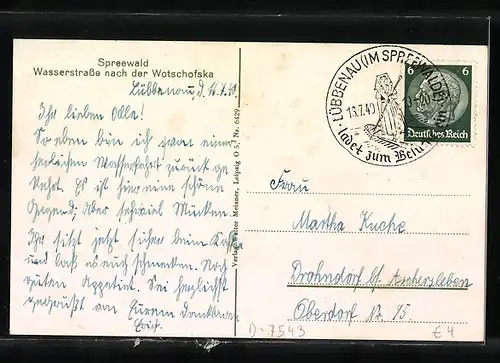 Spreewald
Wasserstraße nach der Wotschofska
Lübbenau, d. 16.7.40.
Ihr lieben Olle!
So eben bin ich von einer
herrlichen Wasserfahrt zurück ge
kehrt. Es ist hier eine schöne
Gegend, Aber sehr viel Mücken
Ihr sitzt jetzt sicher beim Kaffee
und laßt es euch schmecken. Noch
guten Appetit. Sei herzlichst
gegrüßt von Eurem dankbaren
Erich.
Verlag Walter Meixner, Leipzig O 5, Nr. 6429
LÜBBENAU (IM SPREEWALDE)
ladet zum
6 6
Deutsches Reich
Frau
Martha Kuche
Drohndorf b/ Aschersleben
Oberdorf Nr. 15
D-7543
€4